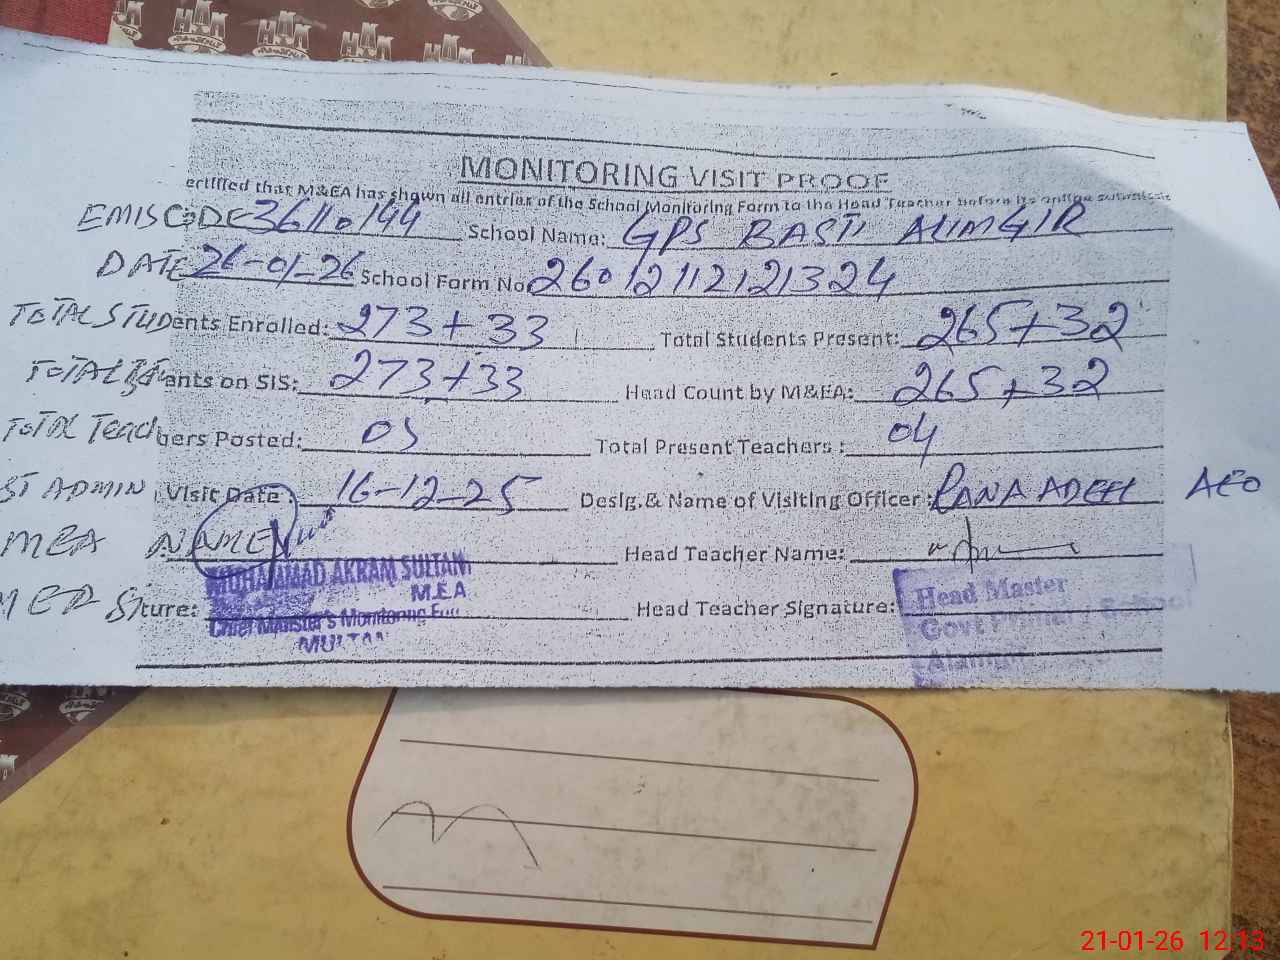 HAK HAK HAK HAK
MONITORING VISIT PROOF
ertified that M&EA has shown all entries of the School Monitoring Form to the Head Teacher before its online submissio
EMIS CODE 36110144 School Name: GPS BASTI ALIMGIR
DATE 26-01-26 School Form No 26012112121324
TOTAL STUDents Enrolled: 273+33 Total Students Present: 265+32
TOTAL ents on SIS: 273+33 Head Count by M&EA: 265+32
TOTAL Teachers Posted: 05 Total Present Teachers : 04
ST ADMIN Visit Date : 16-12-25 Desig.& Name of Visiting Officer : RANA ADEEL AEO
MEA NAME Head Teacher Name:
ture: Head Teacher Signature:
MUHAMMAD AKRAM SULTANI
M.E.A
Chief Minister's Monitoring
MULTAN
Head Master
Govt Primary School
21-01-26 12:13